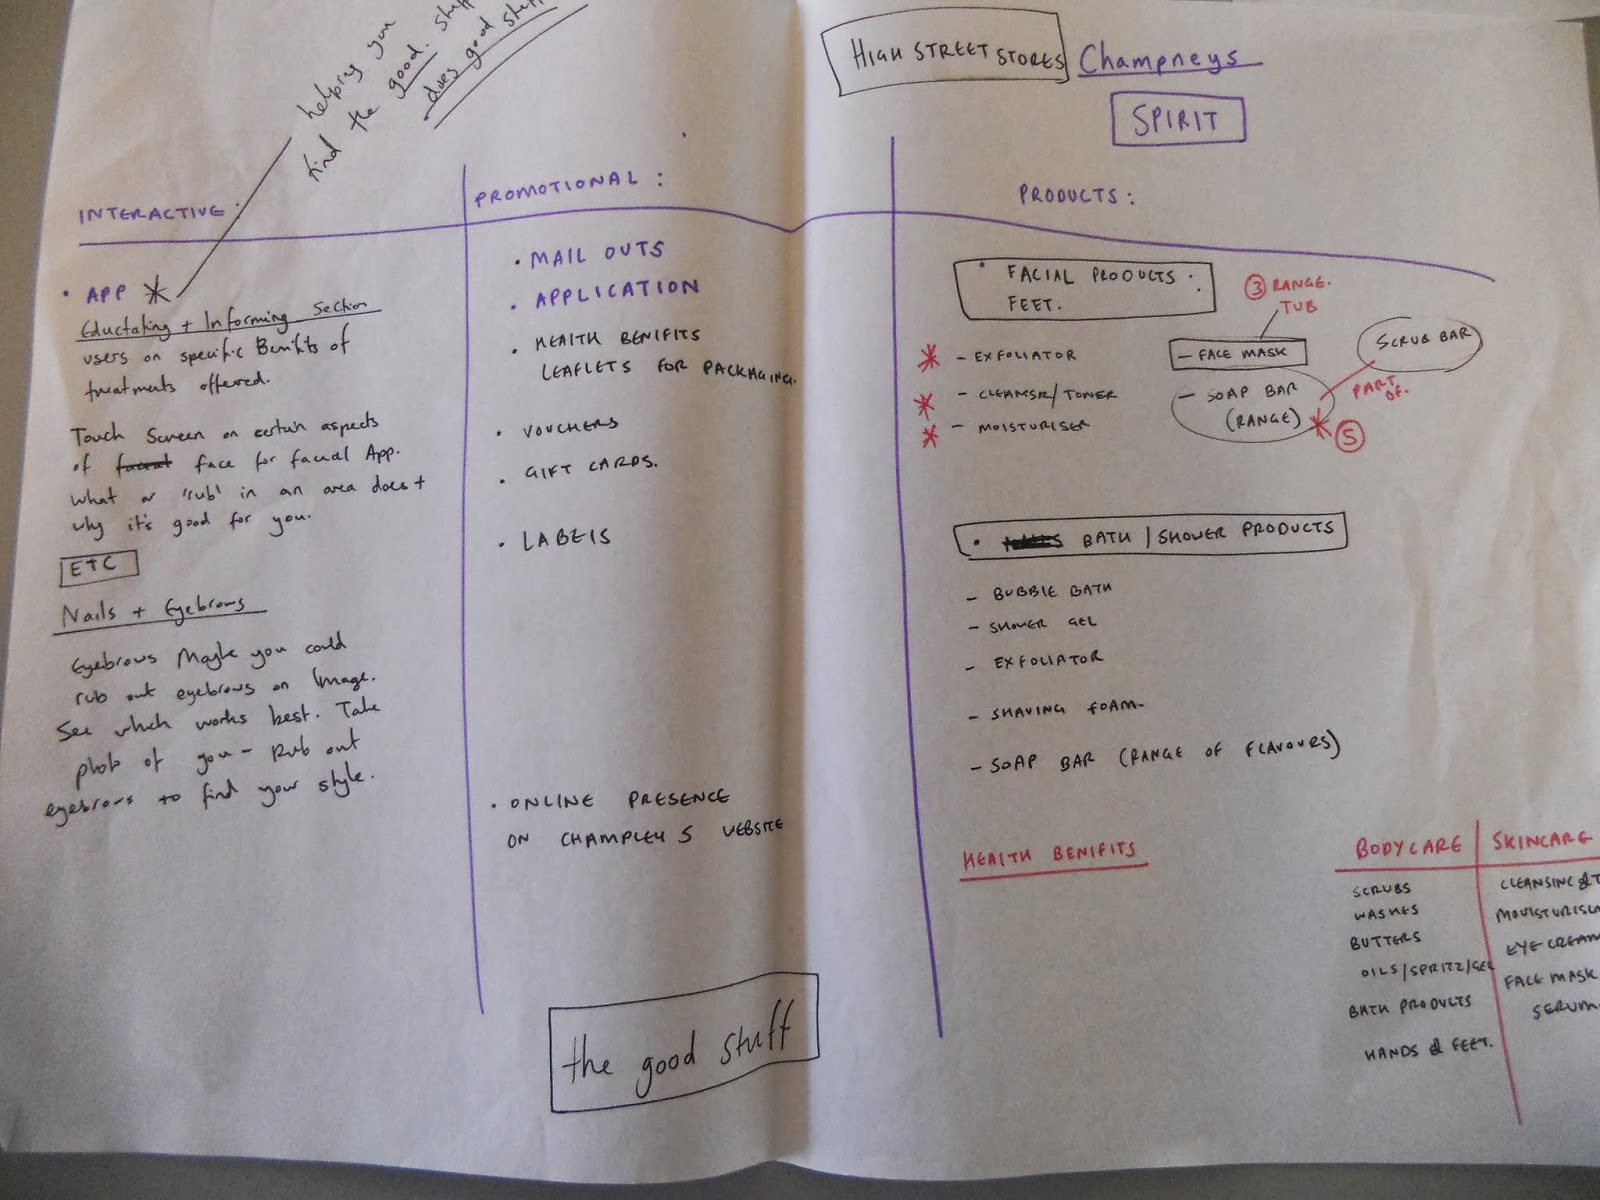 helping you
find the good. stuff
does good stuff
HIGH STREET STORES
Champneys
SPIRIT
INTERACTIVE:
• APP *
Eductating + Informing Section
users on specific Benifits of
treatments offered.
Touch Screen on certain aspects
of facial face for facial App.
what a 'rub' in an area does +
why it's good for you.
ETC
Nails + Eyebrows
Eyebrows Maybe you could
rub out eyebrows on Image.
See which works best. Take
photo of you - Rub out
eyebrows to find your style.
PROMOTIONAL :
• MAIL OUTS
• APPLICATION
• HEALTH BENIFITS
LEAFLETS FOR PACKAGING.
• VOUCHERS
• GIFT CARDS.
• LABELS
• ONLINE PRESENCE
ON CHAMPLEYS WEBSITE
the good stuff
PRODUCTS :
• FACIAL PRODUCTS :
FEET.
* - EXFOLIATOR
* - CLEAMSR/TONER
* - MOISTURISER
3 RANGE.
TUB
- FACE MASK
- SOAP BAR
(RANGE) * 5
SCRUB BAR
PART
OF.
• BATH / SHOWER PRODUCTS
- BUBBLE BATH
- SHOWER GEL
- EXFOLIATOR
- SHAVING FOAM.
- SOAP BAR (RANGE OF FLAVOURS)
HEALTH BENIFITS
BODYCARE
SCRUBS
WASHES
BUTTERS
OILS/SPRITZ/GEL
BATH PRODUCTS
HANDS & FEET.
SKINCARE
CLEANSING & T
MOUISTURISE
EYE CREAM
FACE MASK
SERUM